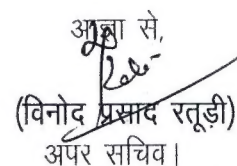 आज्ञा से,
(विनोद प्रसाद रतूड़ी)
अपर सचिव।